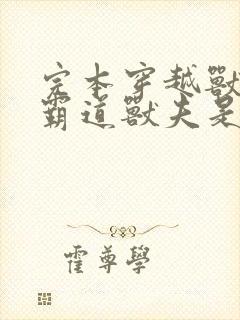 完本穿越獸
霸道獸夫是
霍尊學